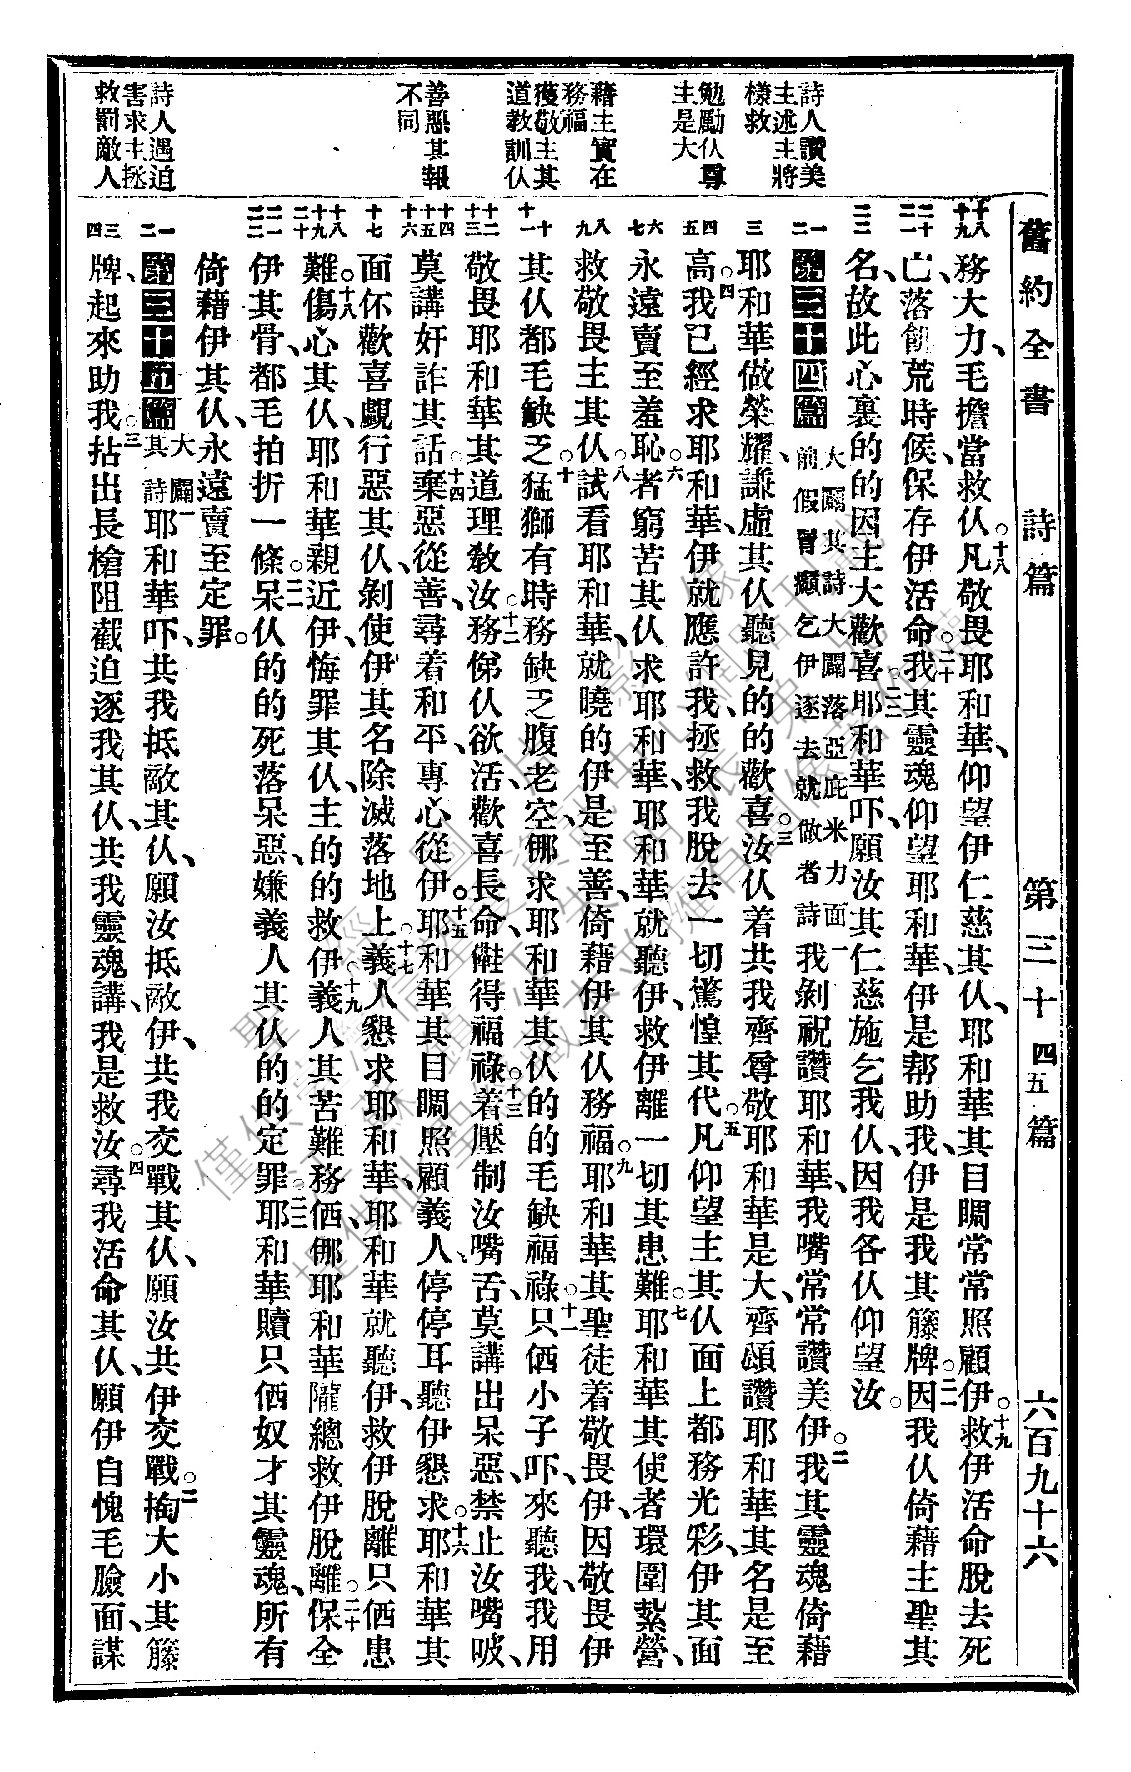 舊約全書 詩篇 第三十四五篇 六百九十六
詩人讚美
主述主將
樣救
勉勵仈尊
主是大
藉主實在
務福
獲敬主其
道教訓仈
善惡其報
不同
詩人遇迫
害求主拯
救罰敵人
十八 十九 務大力、毛擔當救仈。十八凡敬畏耶和華、仰望伊仁慈其仈、耶和華其目睭常常照顧伊。十九救伊活命脫去死
二十 二一 亡、落饑荒時候、保存伊活命。二十我其靈魂仰望耶和華、伊是帮助我、伊是我其籐牌。二一因我仈倚藉主聖其
二二 名、故此心裏的的因主大歡喜。二二耶和華吓、願汝其仁慈施乞我仈、因我各仈仰望汝。
一 二 第三十四篇 大闢其詩大闢落亞庇米力面前假冒癲乞伊逐去就做者詩 一我剝祝讚耶和華、我嘴常常讚美伊。二我其靈魂倚藉
三 耶和華做榮耀、謙虛其仈聽見的的歡喜。三汝仈着共我齊尊敬耶和華是大、齊頌讚耶和華其名是至
四 五 高。四我已經求耶和華、伊就應許我、拯救我脫去一切驚惶其代。五凡仰望主其仈面上都務光彩、伊其面
六 七 永遠賣至羞恥。六者窮苦其仈求耶和華、耶和華就聽伊、救伊離一切其患難。七耶和華其使者環圍紮營、
八 九 救敬畏主其仈。八試看耶和華、就曉的伊是至善、倚藉伊其仈務福。九耶和華其聖徒着敬畏伊、因敬畏伊
十 十一 其仈都毛缺乏。十猛獅有時務缺乏腹老空、倻求耶和華其仈的的毛缺福祿。十一只個小子吓、來聽我、我用
十二 十三 敬畏耶和華其道理教汝。十二務倻仈欲活歡喜長命、儺得福祿。十三着壓制汝嘴舌、莫講出呆惡、禁止汝嘴唦、
十四 十五 十六 莫講奸詐其話。十四棄惡從善、尋着和平、專心從伊。十五耶和華其目睭照顧義人、停停耳聽伊懇求。十六耶和華其
十七 面伓歡喜覷行惡其仈、剝使伊其名除滅落地上。十七義人懇求耶和華、耶和華就聽伊、救伊脫離只個患
十八 十九 二十 難。十八傷心其仈、耶和華親近伊、悔罪其仈、主的的救伊。十九義人其苦難務価、倻耶和華隴總救伊脫離。二十保全
二一 二二 伊其骨、都毛拍折一條。二一呆仈的的死落呆惡、嫌義人其仈的的定罪。二二耶和華贖只価奴才其靈魂、所有
倚藉伊其仈、永遠賣至定罪。
一 二 第三十五篇 大闢其詩 一耶和華吓、共我抵敵其仈、願汝抵敵伊、共我交戰其仈、願汝共伊交戰。二掏大小其籐
三 四 牌、起來助我。三拈出長槍、阻截迫逐我其仈、共我靈魂講、我是救汝。四尋我活命其仈、願伊自愧毛臉面、謀